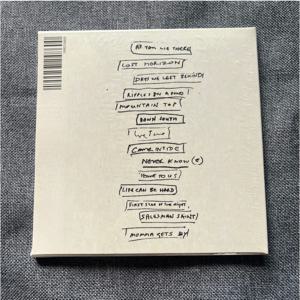 AS YOU LIE THERE
LOST HORIZON
DAYS WE LEFT BEHIND
RIPPLES IN A POND
MOUNTAIN TOP
DOWN SOUTH
WE TWO
COME INSIDE
NEVER KNOW
HOME TO US
LIFE CAN BE HARD
FIRST STAR OF THE NIGHT
SALESMAN SAINT
MOMMA GETS BY